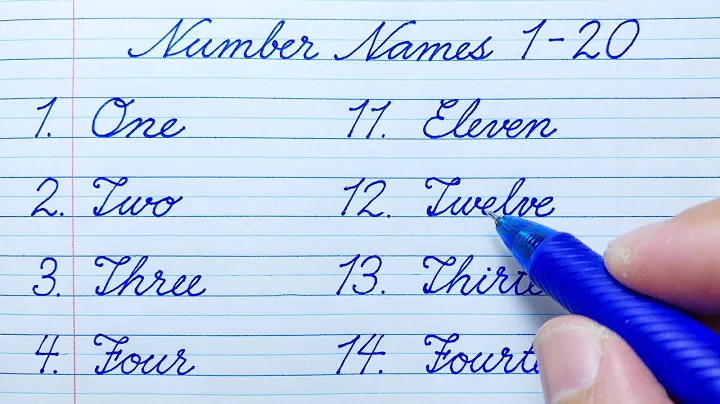 Number Names 1-20
1. One 11. Eleven
2. Two 12. Twelve
3. Three 13. Thirte
4. Four 14. Fourt